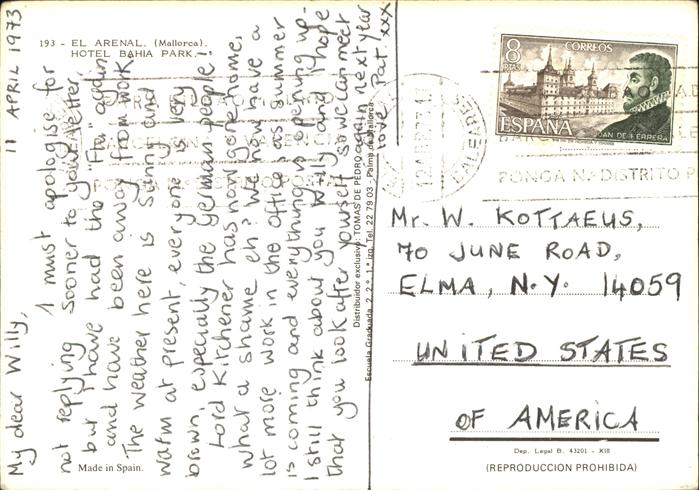 193 - EL ARENAL. (Mallorca).
HOTEL BAHIA PARK.
11 APRIL 1973
My dear Willy,
I must apologise for
not replying sooner to your letter,
but I have had the "Flu" again
and have been away from work.
The weather here is sunny and
warm at present, everyone is very
brown, especially the German people!
Lord Kitchener has now gone home,
what a shame eh? We now have a
lot more work in the office as summer
is coming and everything is opening up.
I still think about you Willy and I hope
that you look after yourself so we can meet
again next year
love Pat. xxx
Made in Spain.
Distribuidor exclusivo: TOMAS DE PEDRO
Escuela Graduada, 2, 2.° 1.ª izq. Tel. 22 79 03 - Palma de Mallorca.
8
PTAS
CORREOS
ESPAÑA
JUAN DE HERRERA
12 ABR 73
BALEARES
PONGA N.º DISTRITO P
Mr. W. KOTTAEUS,
70 JUNE ROAD,
ELMA, N.Y. 14059
UNITED STATES
OF AMERICA
Dep. Legal B. 43201 - XIII
(REPRODUCCION PROHIBIDA)